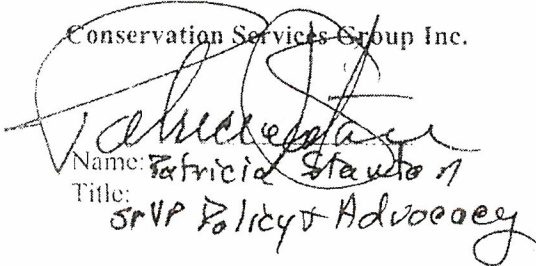 Conservation Services Group Inc.
Name: Patricia Stanton
Title:
Sr VP Policy & Advocacy